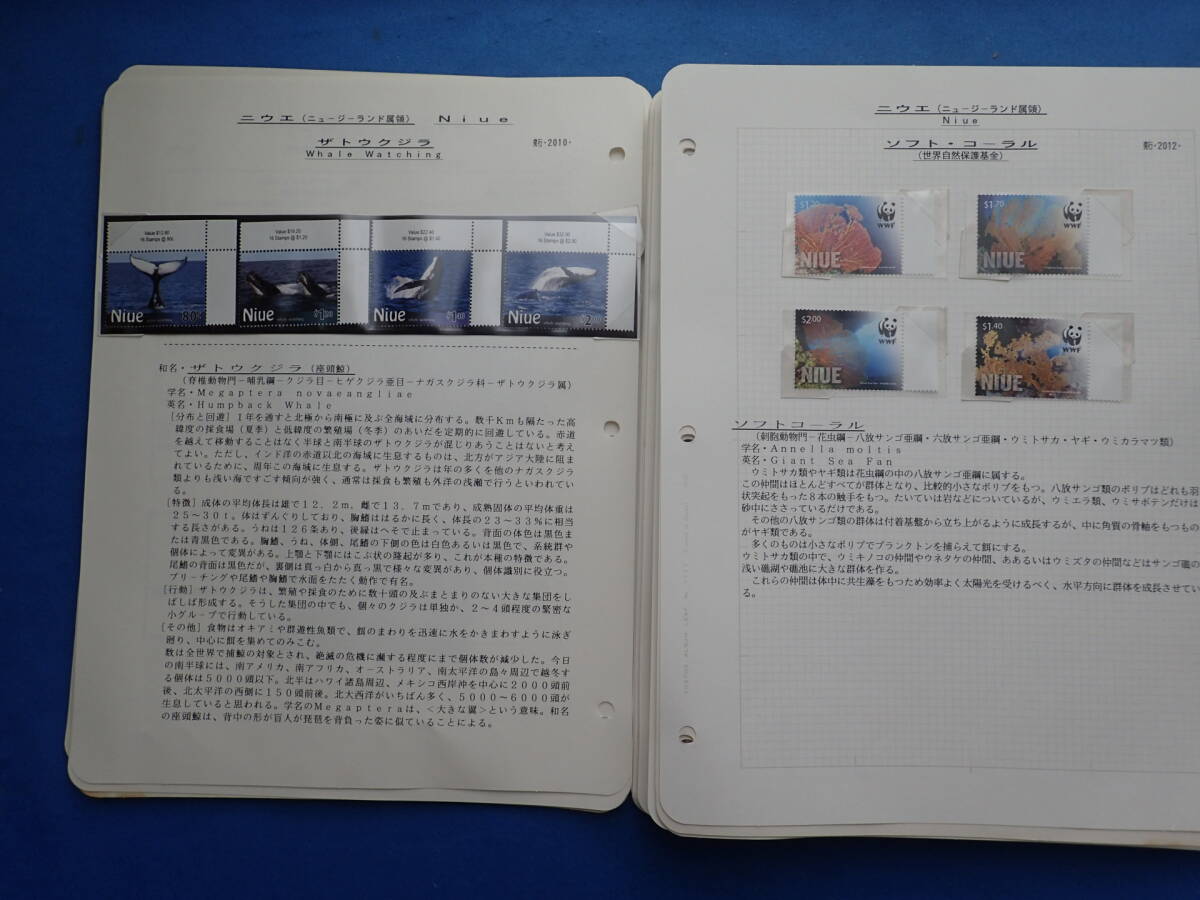 ニウエ（ニュージーランド属領） Niue
ザトウクジラ
Whale Watching
発行・2010・
Value $12.80
16 Stamps @ 80c
Value $19.20
16 Stamps @ $1.20
Value $22.40
16 Stamps @ $1.40
Value $32.00
16 Stamps @ $2.00
Niue 80c
Niue $1.20
Niue $1.40
Niue $2.00
和名・ザトウクジラ（座頭鯨）
（脊椎動物門－哺乳綱－クジラ目－ヒゲクジラ亜目－ナガスクジラ科－ザトウクジラ属）
学名・Megaptera novaeangliae
英名・Humpback Whale
［分布と回遊］1年を通すと北極から南極に及ぶ全海域に分布する。数千Kmも隔たった高
緯度の採食場（夏季）と低緯度の繁殖場（冬季）のあいだを定期的に回遊している。赤道
を越えて移動することはなく半球と南半球のザトウクジラが混じりあうことはないと考え
てよい。ただし、インド洋の赤道以北の海域に生息するものは、北方がアジア大陸に阻ま
れているために、周年この海域に生息する。ザトウクジラは年の多くを他のナガスクジラ
類よりも浅い海ですごす傾向が強く、通常は採食も繁殖も外洋の浅瀬で行うといわれてい
る。
［特徴］成体の平均体長は雄で12．2m．雌で13．7mであり、成熟固体の平均体重は
25～30t。体はずんぐりしており、胸鰭ははるかに長く、体長の23～33％に相当
する長さがある。うねは126条あり、後縁はへそで止まっている。背面の体色は黒色ま
たは青黒色である。胸鰭、うね、体側、尾鰭の下側の色は白色あるいは黒色で、系統群や
個体によって変異がある。上顎と下顎にはこぶ状の隆起が多り、これが本種の特徴である。
尾鰭の背面は黒色だが、裏側は真っ白から真っ黒で様々な変異があり、個体識別に役立つ。
ブリ－チングや尾鰭や胸鰭で水面をたたく動作で有名。
［行動］ザトウクジラは、繁殖や採食のために数十頭の及ぶまとまりのない大きな集団をし
ばしば形成する。そうした集団の中でも、個々のクジラは単独か、2～4頭程度の繁密な
小グル－プで行動している。
［その他］食物はオキアミや群遊性魚類で、餌のまわりを迅速に水をかきまわすように泳ぎ
廻り、中心に餌を集めてのみこむ。
数は全世界で捕鯨の対象とされ、絶滅の危機に瀕する程度にまで個体数が減少した。今日
の南半球には、南アメリカ、南アフリカ、オーストラリア、南太平洋の島々周辺で越冬す
る個体は5000頭以下。北半はハワイ諸島周辺、メキシコ西岸沖を中心に2000頭前
後、北太平洋の西側に150頭前後。北大西洋がいちばん多く、5000～6000頭が
生息していると思われる。学名のMegapteraは、＜大きな翼＞という意味。和名
の座頭鯨は、背中の形が盲人が琵琶を背負った姿に似ていることによる。
ニウエ（ニュージーランド属領）
Niue
ソフト・コーラル
（世界自然保護基金）
発行・2012・
$1.20 WWF
NIUE
$1.70 WWF
NIUE
$2.00 WWF
NIUE
$1.40 WWF
NIUE
ソフトコーラル
（刺胞動物門－花虫綱－八放サンゴ亜綱・六放サンゴ亜綱・ウミトサカ・ヤギ・ウミカラマツ類）
学名・Annella moltis
英名・Giant Sea Fan
ウミトサカ類やヤギ類は花虫綱の中の八放サンゴ亜綱に属する。
この仲間はほとんどすべてが群体となり、比較的小さなポリプをもつ。八放サンゴ類のポリプはどれも羽
状突起をもった8本の触手をもつ。たいていは岩などについているが、ウミエラ類、ウミサボテンだけは
砂中にささっているだけである。
その他の八放サンゴ類の群体は付着基盤から立ち上がるように成長するが、中に角質の骨軸をもつもの
がヤギ類である。
多くのものは小さなポリプでプランクトンを捕らえて餌にする。
ウミトサカ類の中で、ウミキノコの仲間やウネタケの仲間、ああるいはウミズタの仲間などはサンゴ礁の
浅い礁湖や礁池に大きな群体を作る。
これらの仲間は体中に共生藻をもつため効率よく太陽光を受けるべく、水平方向に群体を成長させてい
る。